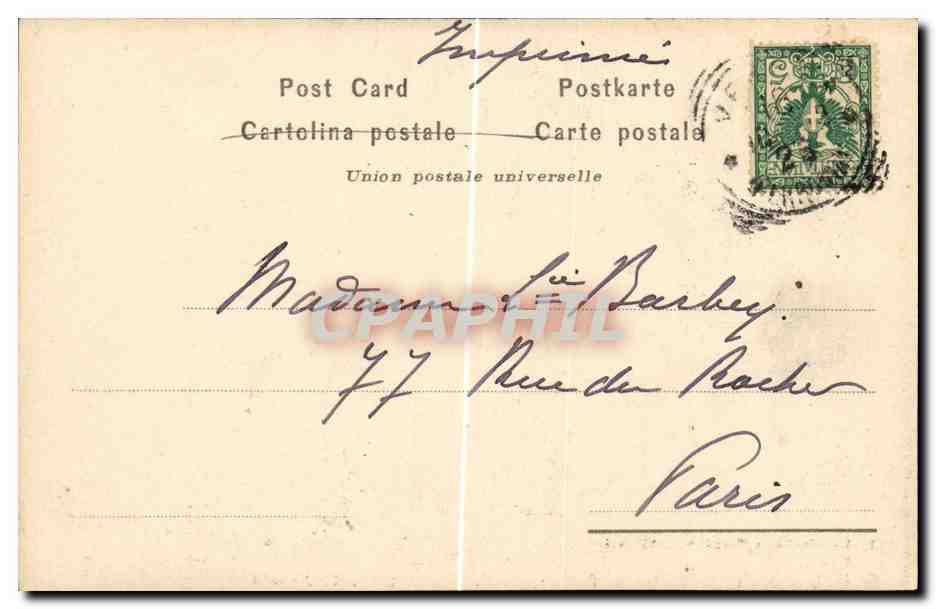 Imprimé
Post Card Postkarte
Cartolina postale Carte postale
Union postale universelle
Madame L ie Barbey.
CPAPHIL
77 Rue du Rocher
Paris